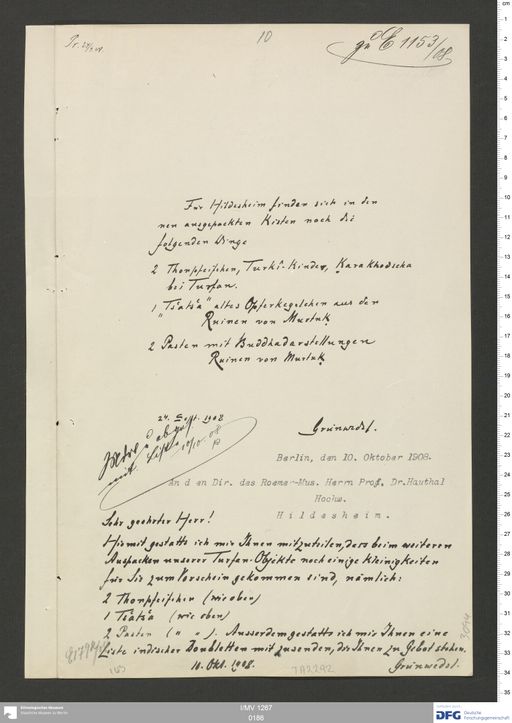 Pr. 24/9.08.
10
zu E 1153/08
Für Hildesheim finden sich in den
neu ausgepackten Kisten noch die
folgenden Dinge
2 Thonpfeifchen, Turki-Kinder, Karakhodscha
bei Turfan.
1 "Ts'ats'a" altes Opferkegelchen aus den
Ruinen von Murtuk
2 Pasten mit Buddhadarstellungen
Ruinen von Murtuk
24. Sept. 1908
Grünwedel.
mit Liste 10/10 08
Berlin, den 10. Oktober 1908.
An den Dir. des Roemer-Mus. Herrn Prof. Dr. Hauthal
Hochw.
Hildesheim.
Sehr geehrter Herr!
Hirmit gestatte ich mir Ihnen mitzuteilen, dass beim weiteren
Auspacken unserer Turfan-Objekte noch einige Kleinigkeiten
für Sie zum Vorschein gekommen sind, nämlich:
2 Thonpfeifchen (wie oben)
1 Ts'ats'a (wie oben)
2 Pasten ( " " ). Ausserdem gestatte ich mir Ihnen eine
Liste indischer Doubletten mit zusenden, die Ihnen zu Gebot stehen.
10. Okt. 1908.
Grünwedel.
TA2292
Ethnologisches Museum
Staatliche Museen zu Berlin
I/MV 1267
0186
DFG Deutsche
Forschungsgemeinschaft